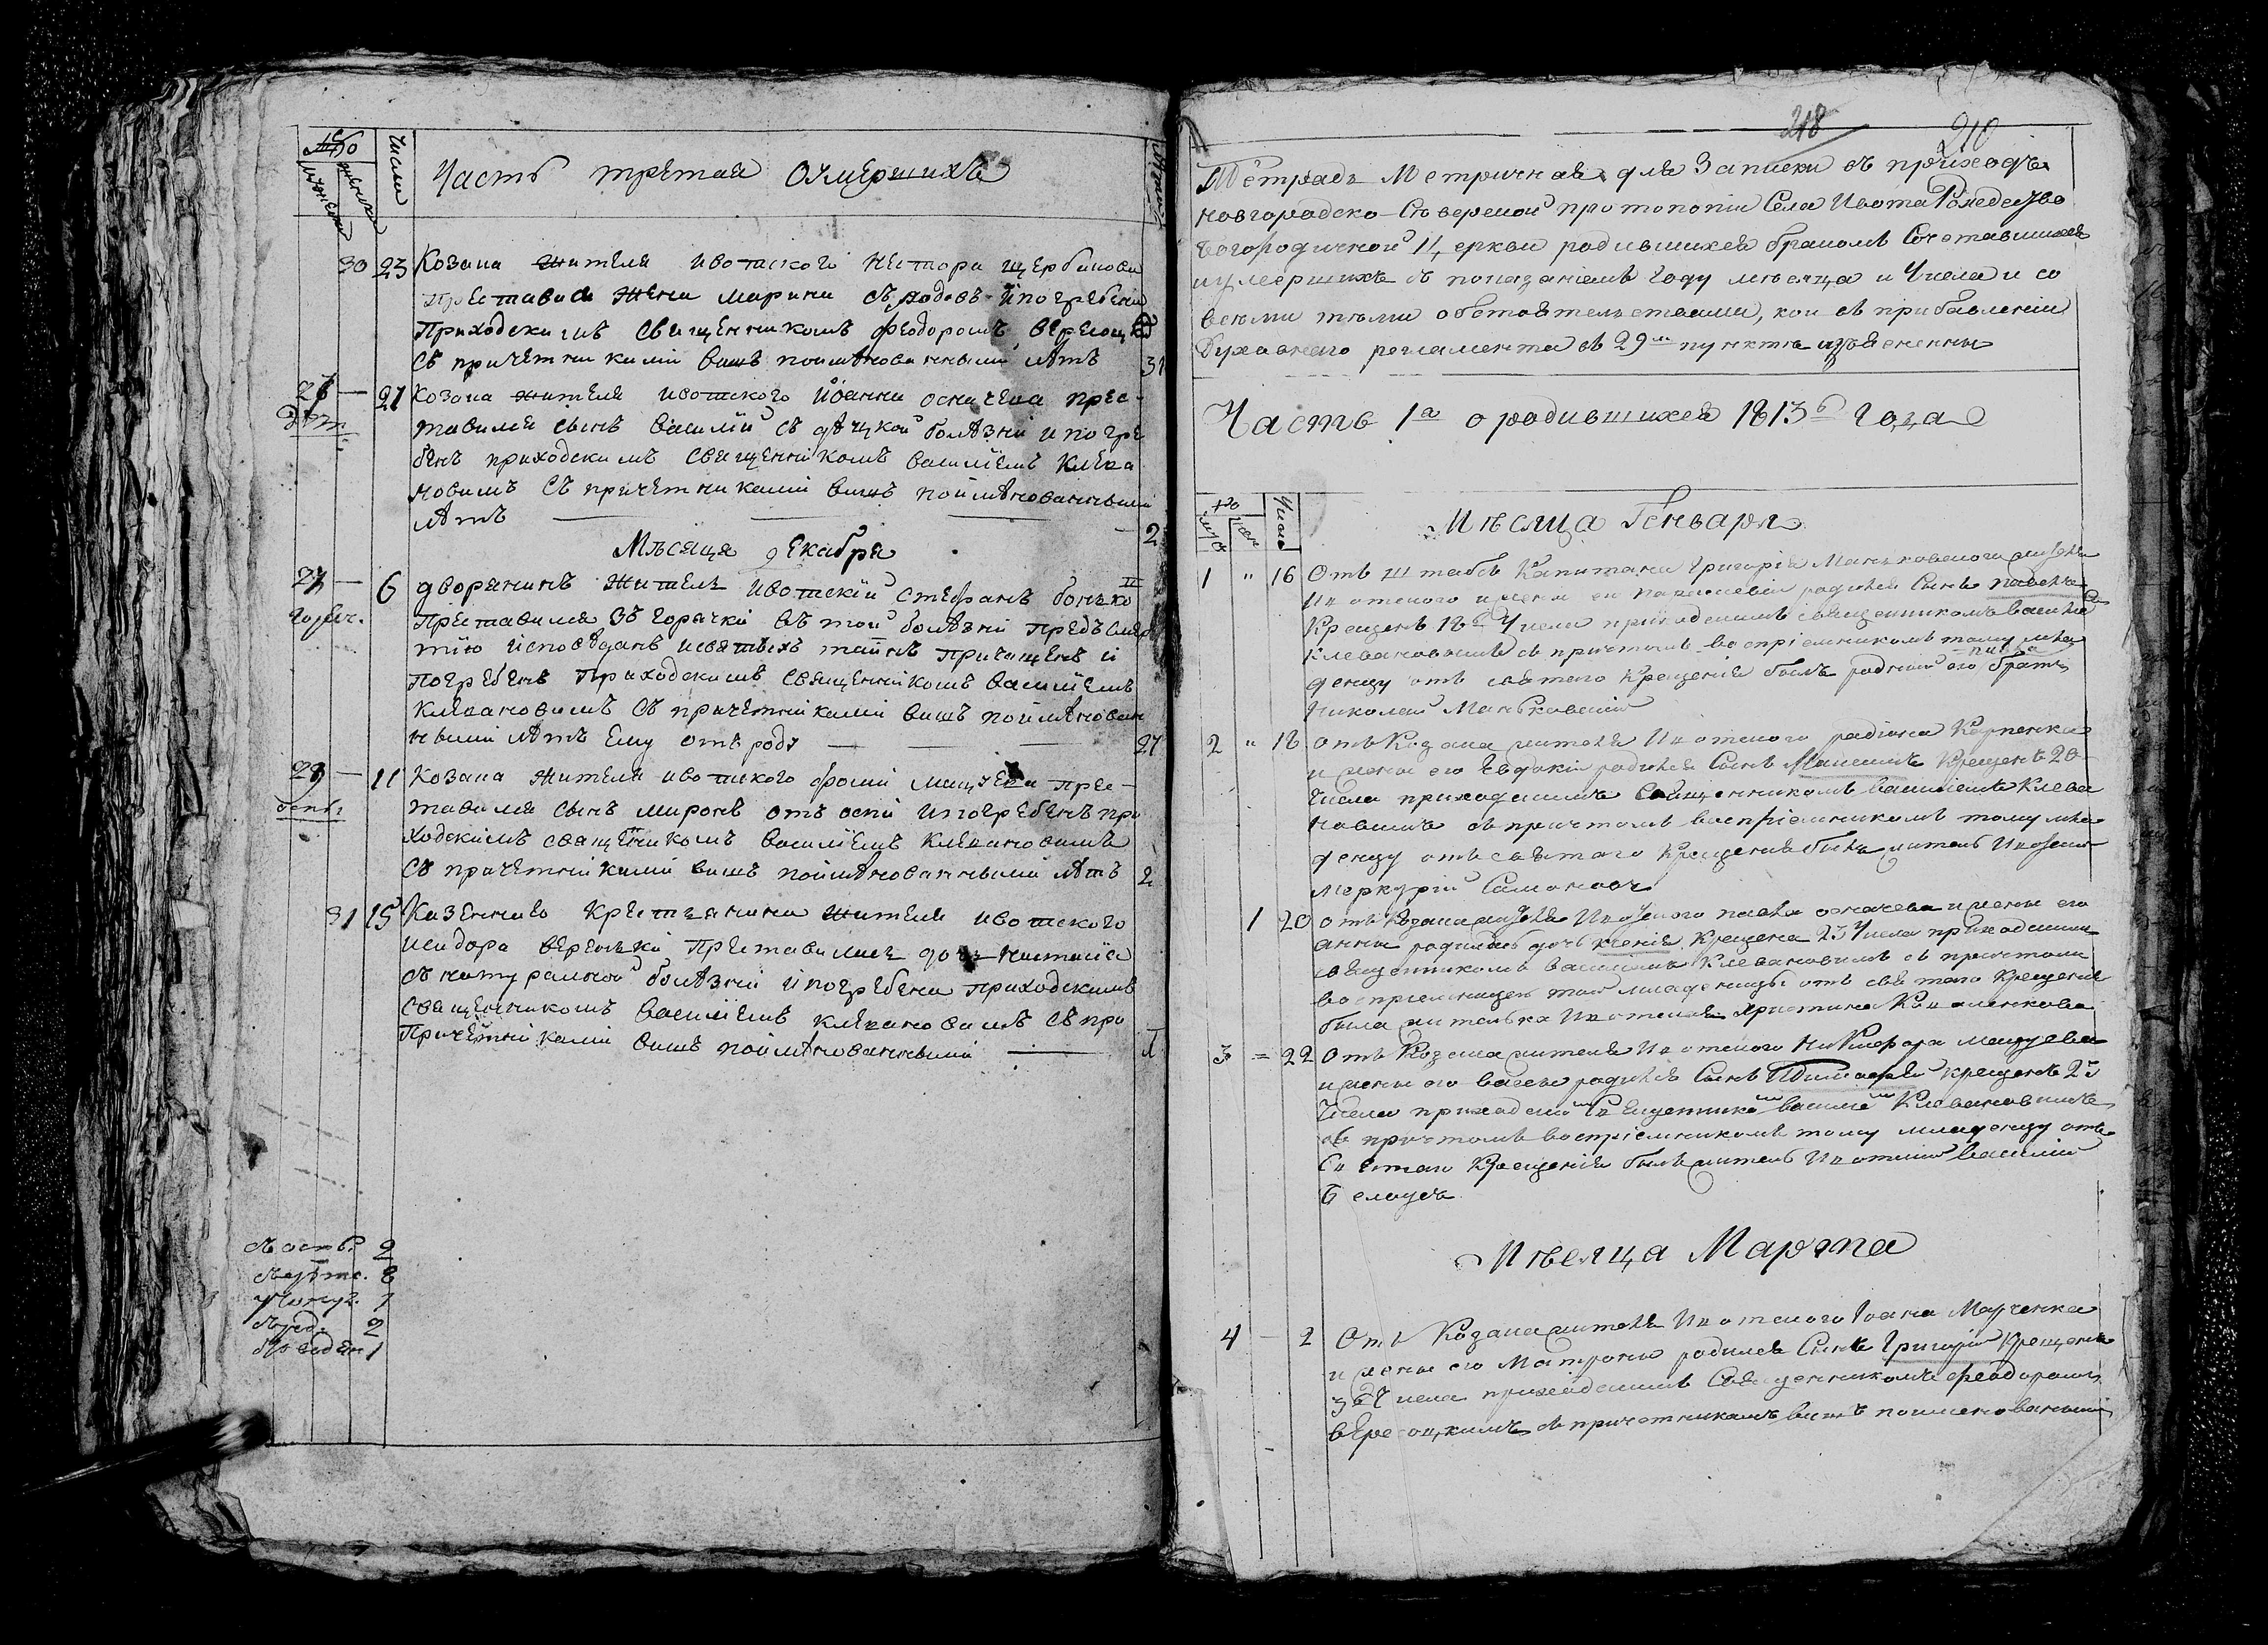 Часть третая Оумершихъ
Числа
30 23 Козака жителя ивотского Нестора щербакова
преставис жена марина съ родовъ и погребена
Приходскимъ Священникомъ Феодоромъ
Съ причетниками вишъ поимѣнованными лѣтъ 31
27 Козака жителя ивотского Иоанна осмачева прес-
тавился сынъ Василий съ дѣцкой болѣзни и погре
бенъ приходскимъ Священникомъ Василиемъ Клева
новимъ Съ причетниками вишъ поимѣнованными
лѣтъ 2
Мѣсяца декабря
6 дворянинъ житель ивотский стефанъ
Преставился въ горячки въ той болѣзни предъ
тию исповѣданъ исвятыхъ таинъ причащенъ и
погребенъ Приходскимъ священникомъ василиемъ
Клевановимъ Съ причетниками вишъ поимѣнован
ными лѣтъ Ему отъ роду 27
11 Козака жителя ивотского фоми мацуева прес-
тавился сынъ миронъ отъ оспи ипогребенъ при
ходскимъ священикомъ василиемъ Клевановимъ
Съ причетниками вишъ поимѣнованными лѣтъ 2
31 15 Казенного Крестьянина жителя ивотского
исидора преставилась дочь
съ натуральной болѣзни и погребена приходскимъ
священникомъ Василиемъ Клевановимъ съ при
Причетниками вишъ поимѣнованними 1
2
1
2
1
218
210
Тетрадь Метричная для Записки въ приходѣ
новгородско-Северской протопопіи Села Ивота Рождество
богородичной Церкви родившихся бракомъ Сочетавшихся
иумершихъ съ показаніемъ году мѣсяца и Числа и со
всѣми тѣми обстоятельствами, кои въ прибавленіи
Духовнаго регламента въ 29м пунктѣ изъяснены
Часть 1а о родившихся 1813го Года
Число
Мѣсяца Генваря
1 " 16 Отъ штабсъ Капитана Григорія Маньковского жителя
Ивотского и жены его родился Сынъ павелъ
Крещенъ 18 Числа приходскимъ священникомъ васили
Клевановымъ съ причтомъ воспріемникомъ тому мла
денцу отъ святаго Крещенія былъ родной его братъ
Николай Маньковский
2 " 18 отъ Козака жителя Ивотского радіона Карпенка
и жены его Евдокіи родился Сынъ Крещенъ 20
Числа приходскимъ Священникомъ василіемъ Клева
новимъ съ причтомъ воспріемникомъ тому мла
денцу отъ святаго Крещенія былъ житель Ивотский
меркурій
1 20 отъ Козака жителя Ивотского павла осмачева и жены его
анны родилась дочь ксенія Крещена 23 Числа приходским
священникомъ василіемъ Клевановимъ съ причтом
воспріемницею той младеницы отъ святаго Крещенія
была жителька Ивотская христина
3 = 22 Отъ Козака жителя Ивотского Никифора мацуева
и жены его родился Сынъ Тимофей крещенъ 23
Числа приходским Священником василіем Клевановимъ
съ причтомъ воспріемникомъ тому младенцу отъ
Святаго Крещенія былъ житель Ивотский василій
белоусъ
Мѣсяца Марта
4 – 2 Отъ Козака жителя Ивотского Іоана Марченка
и жены его Матроны родился Сынъ Григорій Крещенъ
3го Числа приходскимъ Священникомъ феодоромъ
съ причетникамъ вишъ поименованими